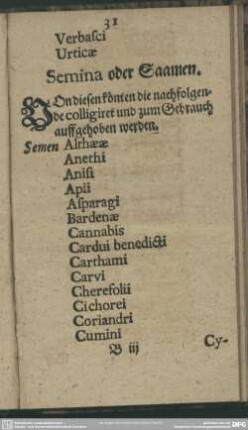 31
Verbasci
Urticæ
Semina oder Saamen.
VOn diesen könten die nachfolgen-
de colligiret und zum Gebrauch
auffgehoben werden.
Semen Althææ
Anethi
Anisi
Apii
Asparagi
Bardenæ
Cannabis
Cardui benedicti
Carthami
Carvi
Cherefolii
Cichorei
Coriandri
Cumini
B iij
Cy-